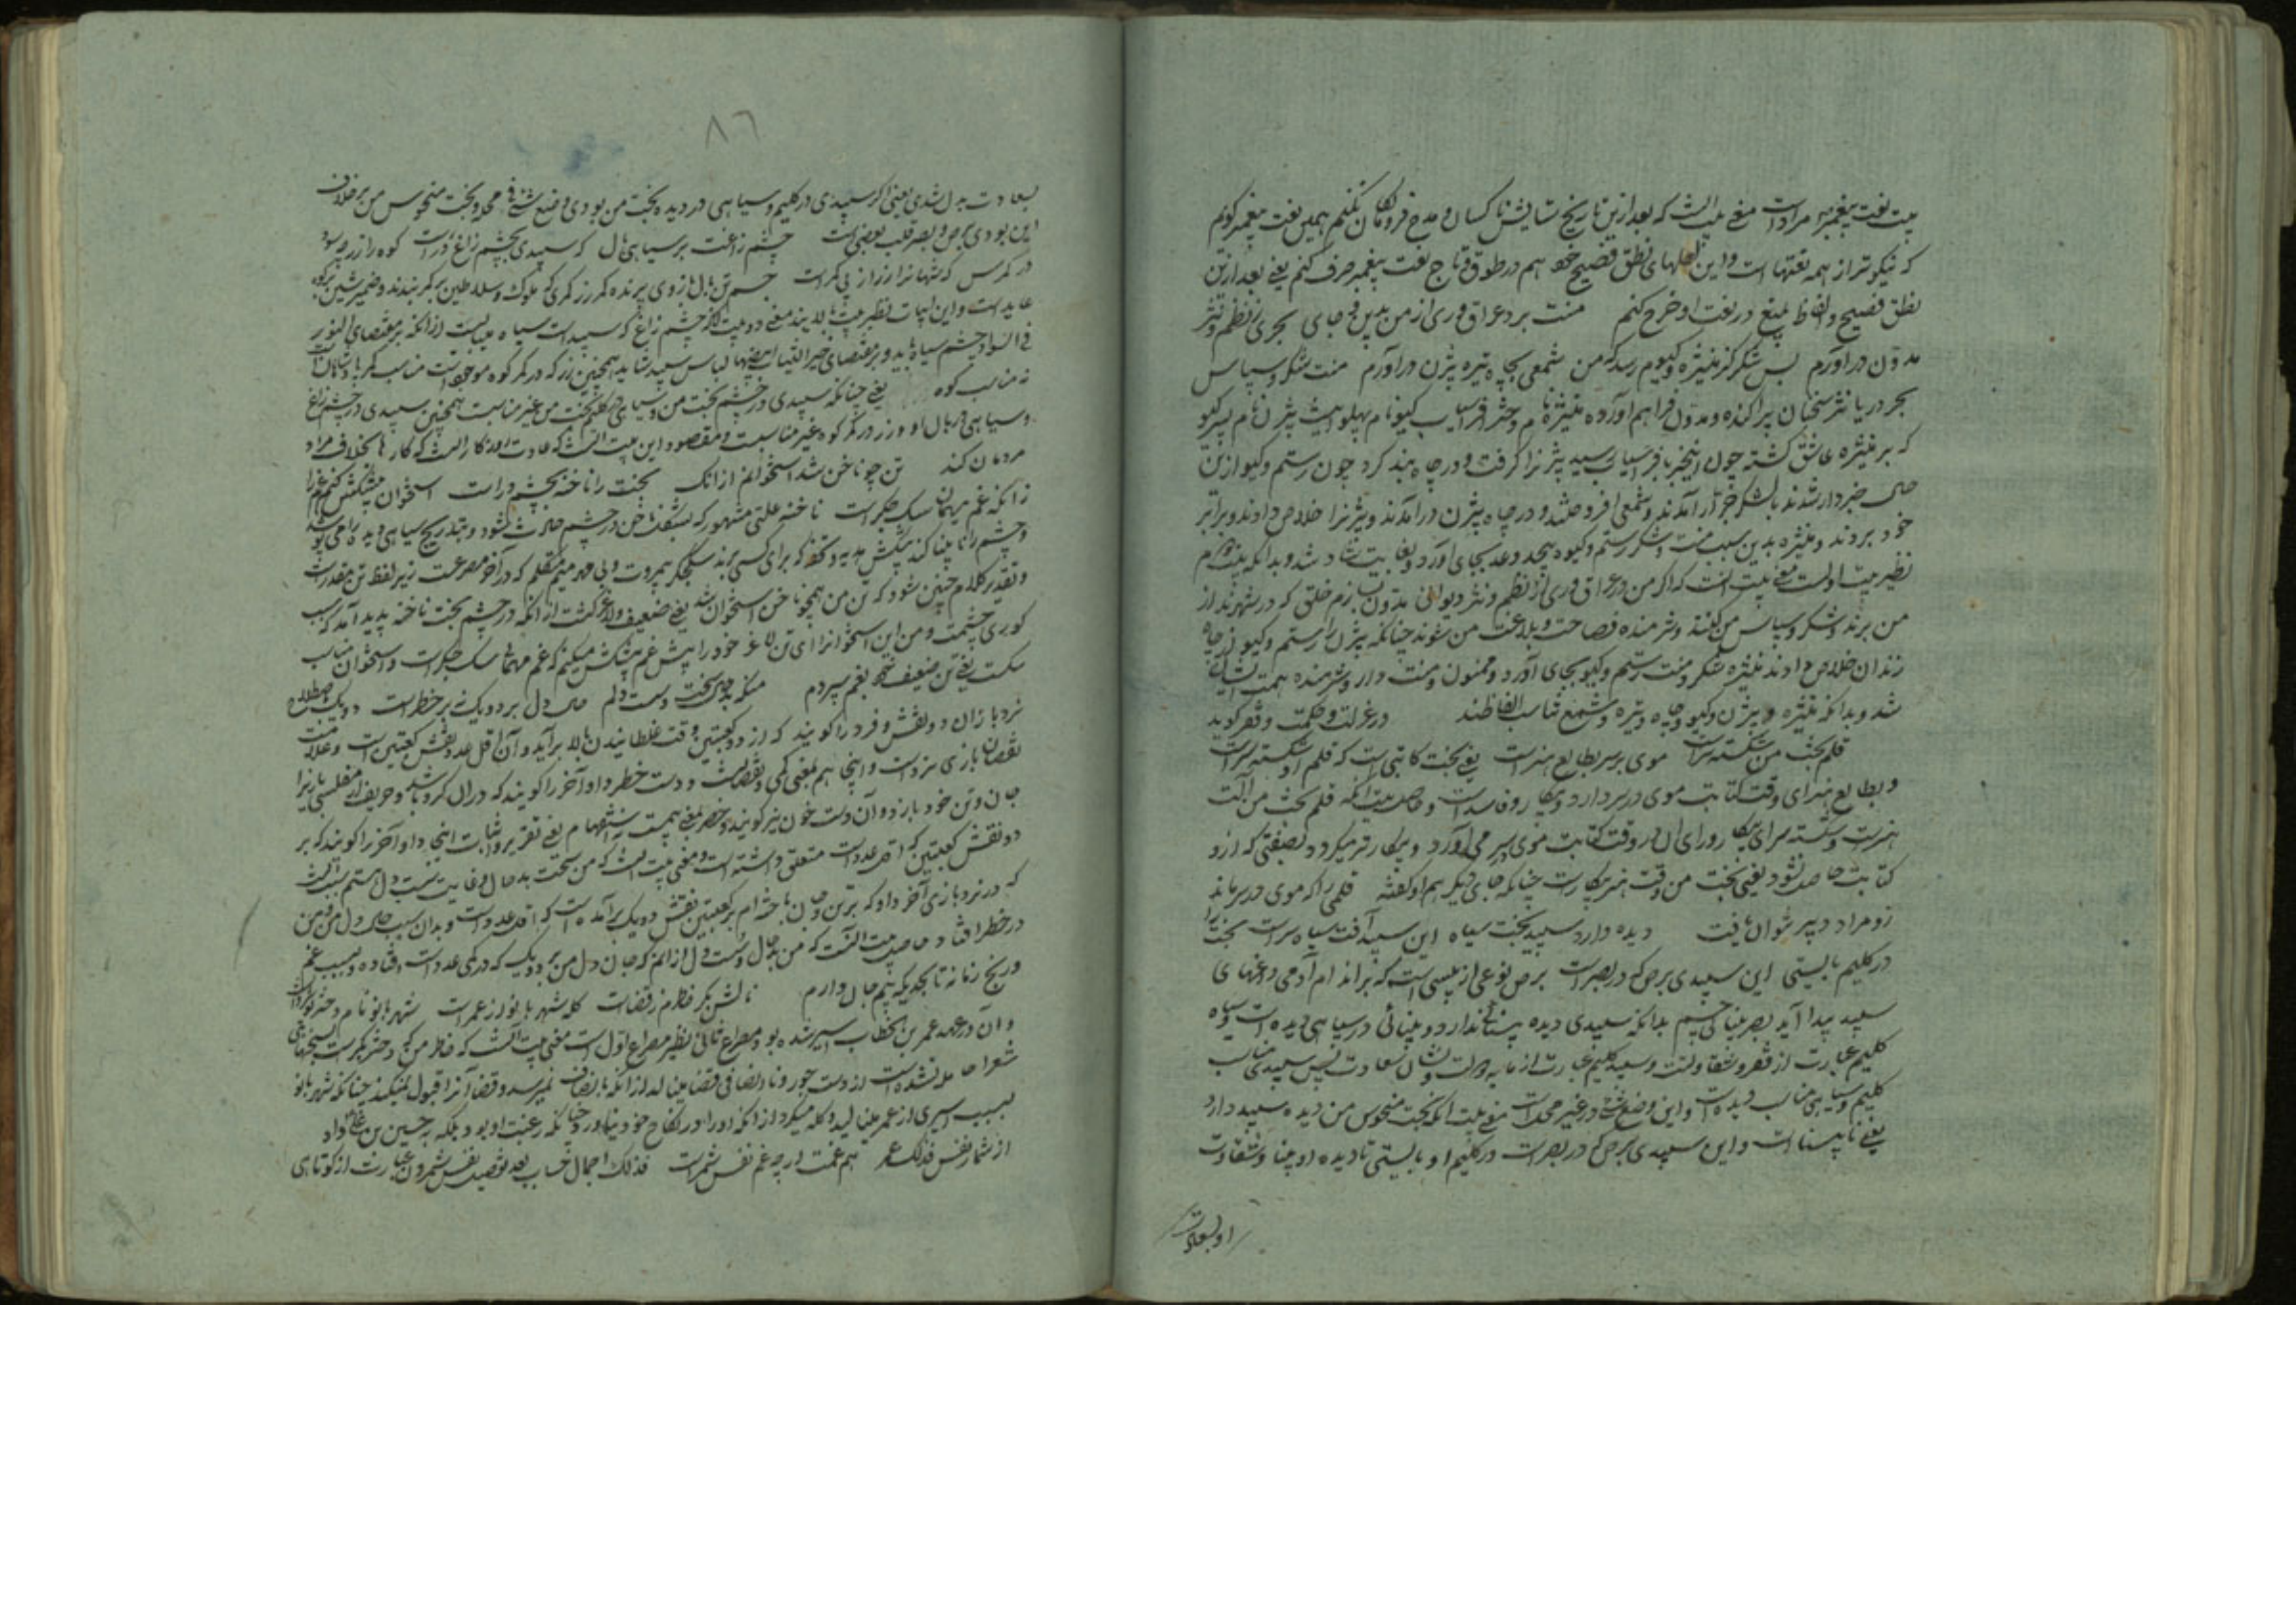 بیت نعت پیغمبر مراد است معنی بیت آنست که بعد ازین تاریخ ستایش ناکسان و مدح فرومایگان نکنم همین نعت پیغمبر گویم
که نیکوتر از همه نعتهاست و این لعلهای نطق فصیح خود هم در طوق و تاج نعت پیغمبر صرف کنم یعنی بعد ازین
نطق فصیح و الفاظ بلیغ در نعت او خرج کنم منت برد عراق و ری از من بدین دو جای بحری ز نظم و نثر
مدون در آورم بس شکر کز منیژه و گیوم رسد که من شمعی بچاه تیره بیژن در آورم منت شکر و سپاس
بحر دریا نثر سخنان پراکنده و مدون فراهم آورده منیژه نام دختر افراسیاب گیو نام پهلوانیست بیژن نام پسر گیو
که بر منیژه عاشق گشته چون این خبر بافراسیاب رسید بیژن را گرفت و در چاه بند کرد چون رستم و گیو ازین
حال خبردار شدند با لشکر جرار آمدند و شمعی افروختند و در چاه بیژن در آمدند و بیژن را خلاص دادند و برابر
خود بردند و منیژه بدین سبب منت و شکر رستم و گیو بیحد و عد بجای آورد و بغایت شاد شد و بدانکه بیت دوم
نظیر بیت اولست معنی بیت آنست که اگر من در عراق و ری از نظم و نثر دیوانی مدون سازم خلق که در شهرند از
من برند و شکر و سپاس من کنند و شرمنده فصاحت و بلاغت من شوند چنانکه بیژن را رستم و گیو از چاه
زندان خلاص دادند منیژه شکر و منت رستم و گیو بجای آورد و ممنون و منت دار و شرمنده همت ایشان
شد و بدانکه منیژه و بیژن و گیو و چاه و تیره و شمع تناسب الفاظند در عزلت و حکمت و فقر گوید
قلم بخت من شکسته سر است موی بر سر بطالع هنر است یعنی بخت کاتبی است که قلم او شکسته سر است
و بطالع هنر ای وقت کتابت موی در سر دارد و بیکار و فاسد است و حاصل بیت آنکه قلم بخت من آلت
هنر است و شکسته سر ای بیکار و رای آن در وقت کتابت موی بسر می آورد و بیکارتر میگردد بصفتی که ازو
کتابت حاصل نشود یعنی بخت من وقت هنر بیکار است چنانکه جای دیگر هم او گفته قلمی را که موی در سر ماند
زو مراد دبیر نتوان یافت دیده دارد سپید بخت سیاه این سپید آفت سیاه سر است بخت را
در گلیم بایستی این سپیدی برص که در بصر است برص نوعی از پیسی است که بر اندام آدمی داغهای
سپید پیدا آید بصر بینائی چشم بدانکه سپیدی دیده بینائی ندارد و بینائی در سیاهی دیده است و سیاه
گلیم عبارت از فقر و شقاوتست و سپید گلیم عبارت از مایه دولت و نشان سعادت پس سپیدی مناسب
گلیم و سیاهی مناسب دیده است و این وضع شئ در غیر محل است معنی بیت آنکه بخت منحوس من دیده سپید دارد
یعنی نابیناست و این سپیدی برص که در بصر است در گلیم او بایستی تا دیده او بینا و شقاوت
او بسعادت
٨٦
بسعادت بدل شدی یعنی اگر سپیدی در گلیم و سیاهی در دیده بخت من بودی وضع شئ فی محله و بخت منحوس من برخلاف
این بودی برص و بصر قلب بعض است چشم زاغست بر سیاهی بال گر سپیدی بچشم زاغ در است کوه را زر چه سود
در کمرش که شهان را زر از پی کمر است جسم تن بال بازوی پرنده کمر زر کمری که ملوک و سلاطین بر کمر بندند و ضمیر شین بر کوه
عایدست و این ابیات نظیر بیت بالایند معنی دو بیت آنکه چشم زاغ که سپید است سیاه میبایست از آنکه بر مقتضای النور
فی السواد چشم سیاه باید و بر مقتضای خیر الثیاب ابیضها لباس سپید شاید همچنین زر که در کمر کوه موجود است مناسب کمر پادشاهان است
نه مناسب کوه یعنی چنانکه سپیدی در چشم بخت من و سیاهی در گلیم بخت من غیر مناسبت همچنین سپیدی در چشم زاغ
و سیاهی در بال او و زر در کمر کوه غیر مناسبت و مقصود این بیت آنست که عادت روزگار آنست که کارها بخلاف مراد
مردمان کند تن چو ناخن شد استخوانم از آنک بخت را ناخنه بچشم در است استخوان پیشکش کنم غم را
زانکه غم میهمان سگ جگر است ناخنه علتی مشهور که بشکل ناخن در چشم حادث شود و بتدریج سیاهی دیده را می پوشد
و چشم را نابینا کند پیشکش هدیه و تحفه که برای کسی برند سگ جگر بیمروت و بی مهر میم متکلم که در آخر مصرعست زیر لفظ تن مقدر است
و تقدیر کلام چنین شود که تن من همچو ناخن استخوان شد یعنی ضعیف و لاغر گشت از آنکه در چشم بخت ناخنه پدید آمد که سبب
کوری چشمست و من این استخوان را ای تن لاغر خود را پیش غم پیشکش میکنم که غم مهمان سگ جگر است و استخوان مناسب
سگست یعنی تن ضعیف خود بغم سپردم منکه بدحال سخت و سست دلم حال دل بر دو یک نه بر خطر است دو یک باصطلاح
نرد بازان دو نقش فرد را گویند که از دو کعبتین وقت غلطانیدن بالا برآید و آن اقل عدد نقش کعبتین است و علامت
نقصان بازی نرد است و اینجا هم بمعنی کمی و نقصانست و دست خطر داو آخر را گویند که در آن گرو باشد و حریف از مفلسی بازی را
جان و تن خود بازد و آن دست خون نیز گویند
دو نقش کعبتین که اقل عدد است متعلق داشته است و معنی بیت آنست که من سخت بدحال و بغایت سست دل هستم بسبب آنست
که در نرد بازی آخر داو که بر تن و جان باخته ام بر کعبتین نقش دو یک برآمده است که اقل عدد است و بدان سبب حال دل من و تن من
در خطر افتاد و حاصل بیت آنست که من بدحال و سست دل از آنم که جان و دل من بر دو یک که در کمی عدد است افتاده و بسبب غم
و رنج زمانه تا بحدیکه بیم جان دارم نالش بکر خاطرم ز قضاست گله شهر بانو از عمر است شهر بانو نام دختر
و آن در عهد عمر بن الخطاب اسیر شده بود و مصراع ثانی نظیر مصراع اول است معنی بیت آنست که خاطر من که دختر بکر است
شعرا حامله نشده است از دست جور و ناانصافی قضا مینالد از آنکه بانصاف نمیرسد و قضا آن را قبول نمیکند چنانکه شهر بانو
بسبب اسیری از عمر مینالید و گله میکرد از آنکه او را در نکاح خود نیاورد چنانکه رغبت او بود بلکه به حسین بن علی داد
از شمار نفس فذلک عمر هم غمست ار چه غم نفس شمر است فذلک اجمال حساب بعد تفصیل نفس شمردن عبارت از کوتاهی